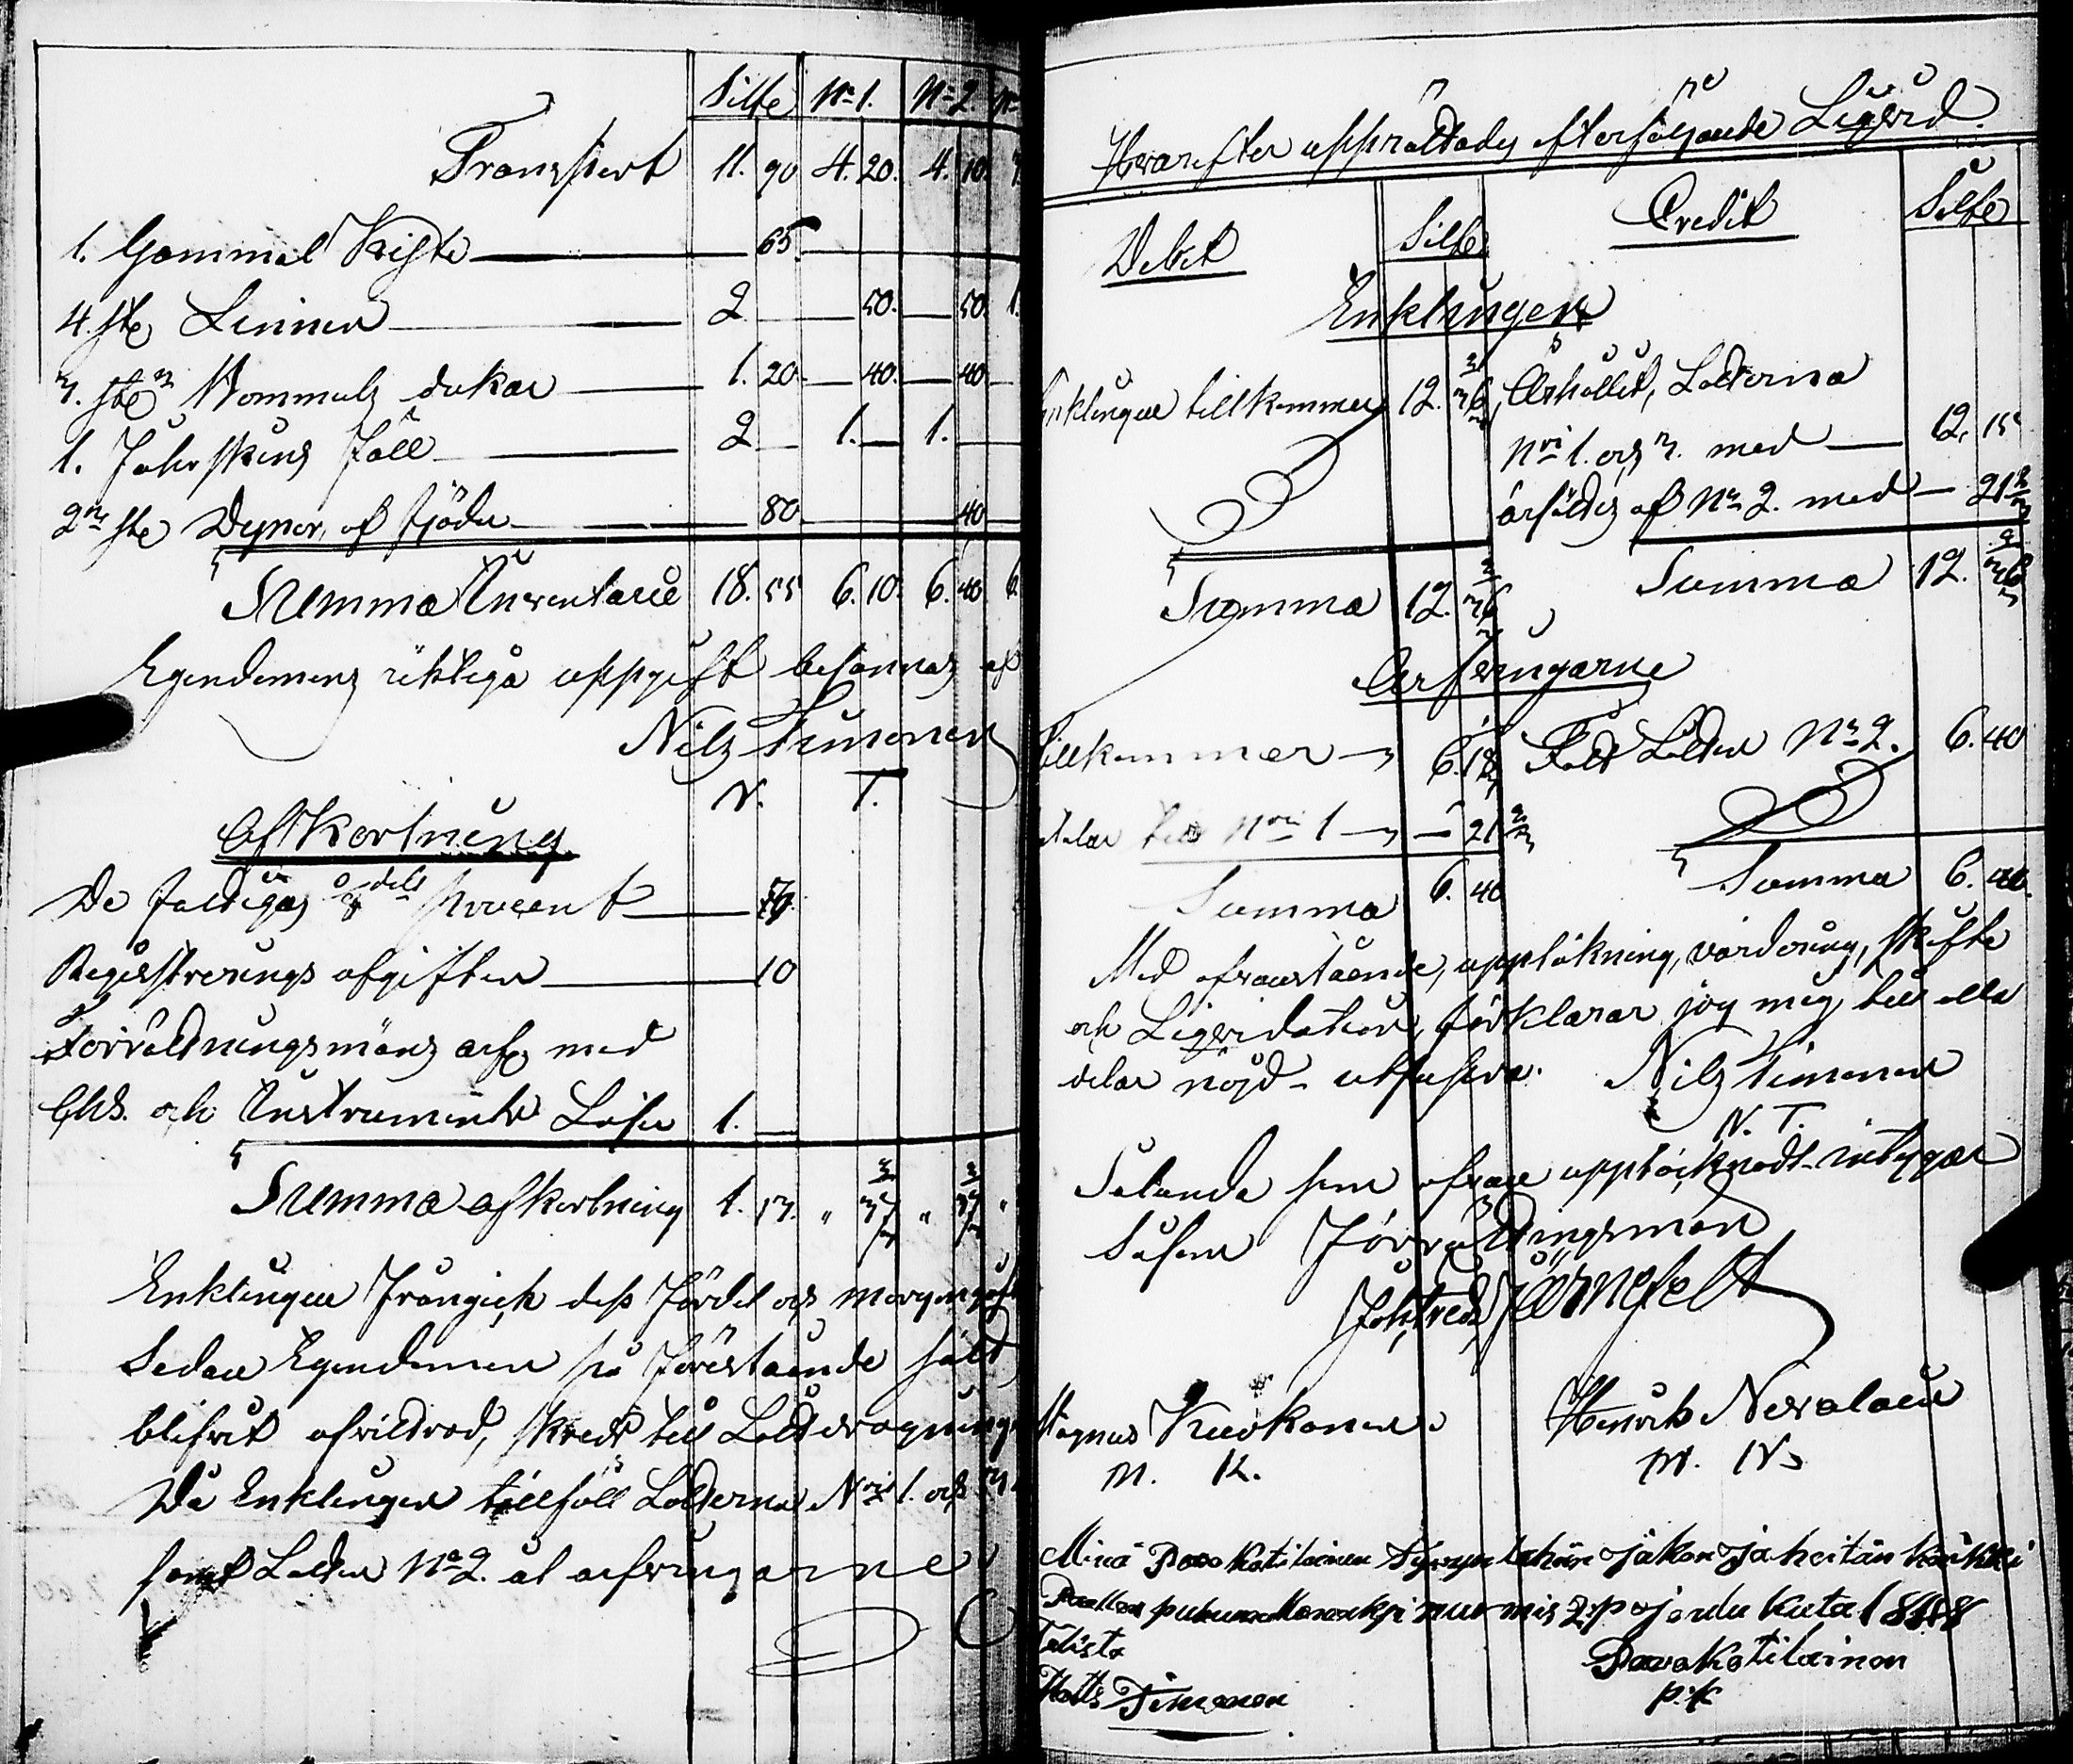 Silfr No 1. No 2. No
Transport 11. 90 4. 20. 4. 10.
1. Gammal Kista 65
4. ste Linnen 2 50. 50. 1.
3. ste Bommuls dukar 1. 20 40. 40
1. Fåhrskins fäll 2 1. 1.
2ne ste Dynor af fjäder 80 40
Summa Inventarie 18. 55 6. 10. 6. 40 6.
Egendomens riktiga uppgift besannas af
Nils Timonen
N. T.
Afkortning
De fattigas 8dels procent
Registrerings afgiften 10
Förrättningsmäns arfe med
Chs. och Instruments Lösn 1.
Summa afkortning 1. 13. " "
Enklingen frångick dess fördel och morgongåfv
Sedan Egendomen på förestående sätt
blifvit afvittrad, skreds till Lottdragninge
Då Enklingen tillföll Lotterna Nris 1. och 3.
samt Lotten No 2. åt arfvingarne
Hvarefter upprättades efterföljande Liqvid.
Debet Silfr Credit Silfr
Enklingen
Enklingen tillkommer 12. 36 Erhållit, Lotterna
Nri 1. och 3. med 12. 15
ärsättes af No 2. med 21 2/3
Summa 12. 36 Summa 12. 36
Arfvingarne
Tillkommer 6. 18 Fått Lotten No 2. 6. 40
till Nri 1 21 2/3
Summa 6. 40 Summa 6. 40.
Med ofvanstående, upptäkning, värdering, skifte
och Liqvidation, förklarar jag mig till alla
delar nöjd - utfästes. Nils Timonen
N. T.
Sålunda som ofvan upptäcknadt - intygar
Såsom Förrättningsmän
Joh Fred Järnefelt
Magnus Kuokanen Henrik Nevalain
M. K. M. N.
Minä Pavo Kotilainen Tyydyn tähän jakon ja heitän kaikki
puhumattomaksi nurmis 2 p joulu kuta 1848
Todista
Matts Timonen Pavo Kotilainen
P. K